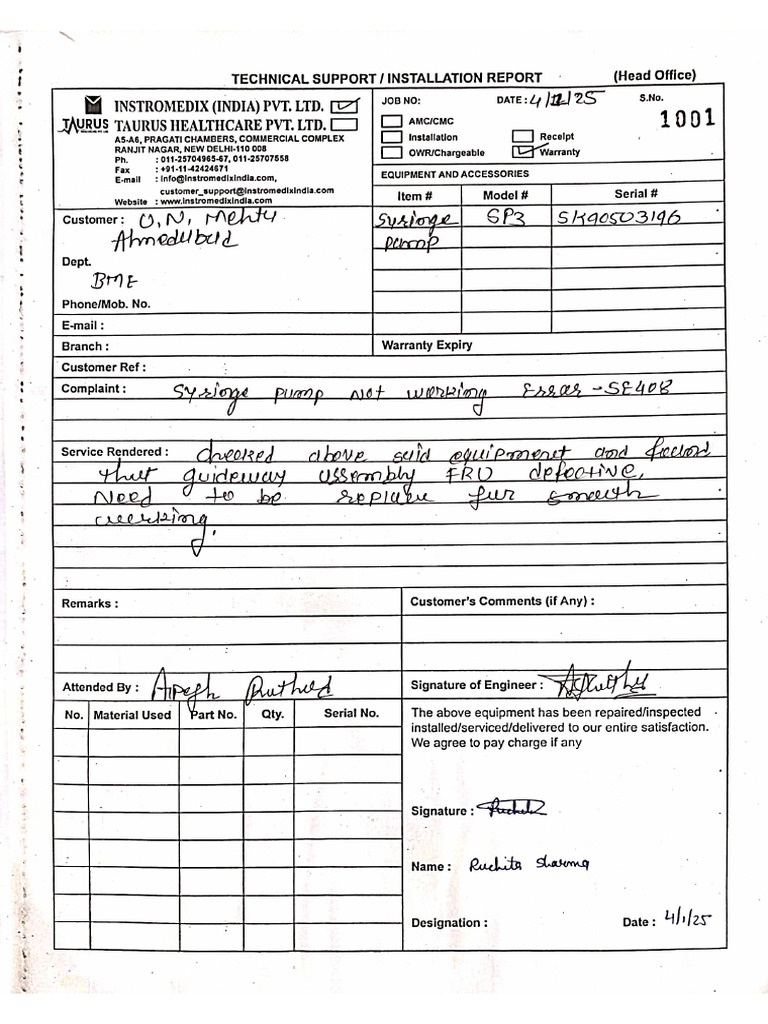 TECHNICAL SUPPORT / INSTALLATION REPORT (Head Office)
INSTROMEDIX (INDIA) PVT. LTD.
TAURUS TAURUS HEALTHCARE PVT. LTD.
A5-A6, PRAGATI CHAMBERS, COMMERCIAL COMPLEX
RANJIT NAGAR, NEW DELHI-110 008
Ph. : 011-25704965-67, 011-25707558
Fax : +91-11-42424671
E-mail : info@instromedixindia.com,
customer_support@instromedixindia.com
Website : www.instromedixindia.com
JOB NO: DATE: 4/1/25 S.No.
1001
AMC/CMC
Installation Receipt
OWR/Chargeable Warranty
EQUIPMENT AND ACCESSORIES
Item # Model # Serial #
Syringe SP3 SK90503196
pump
Customer : U.N. Mehta
Ahmedabad
Dept.
BME
Phone/Mob. No.
E-mail :
Branch : Warranty Expiry
Customer Ref :
Complaint : Syringe pump not working Error - SE408
Service Rendered : checked above said equipment and found
that guideway assembly FRU defective,
Need to be replace for smooth
working.
Remarks : Customer's Comments (if Any) :
Attended By : Signature of Engineer :
No. Material Used Part No. Qty. Serial No.
The above equipment has been repaired/inspected
installed/serviced/delivered to our entire satisfaction.
We agree to pay charge if any
Signature :
Name : Ruchita Sharma
Designation : Date : 4/1/25